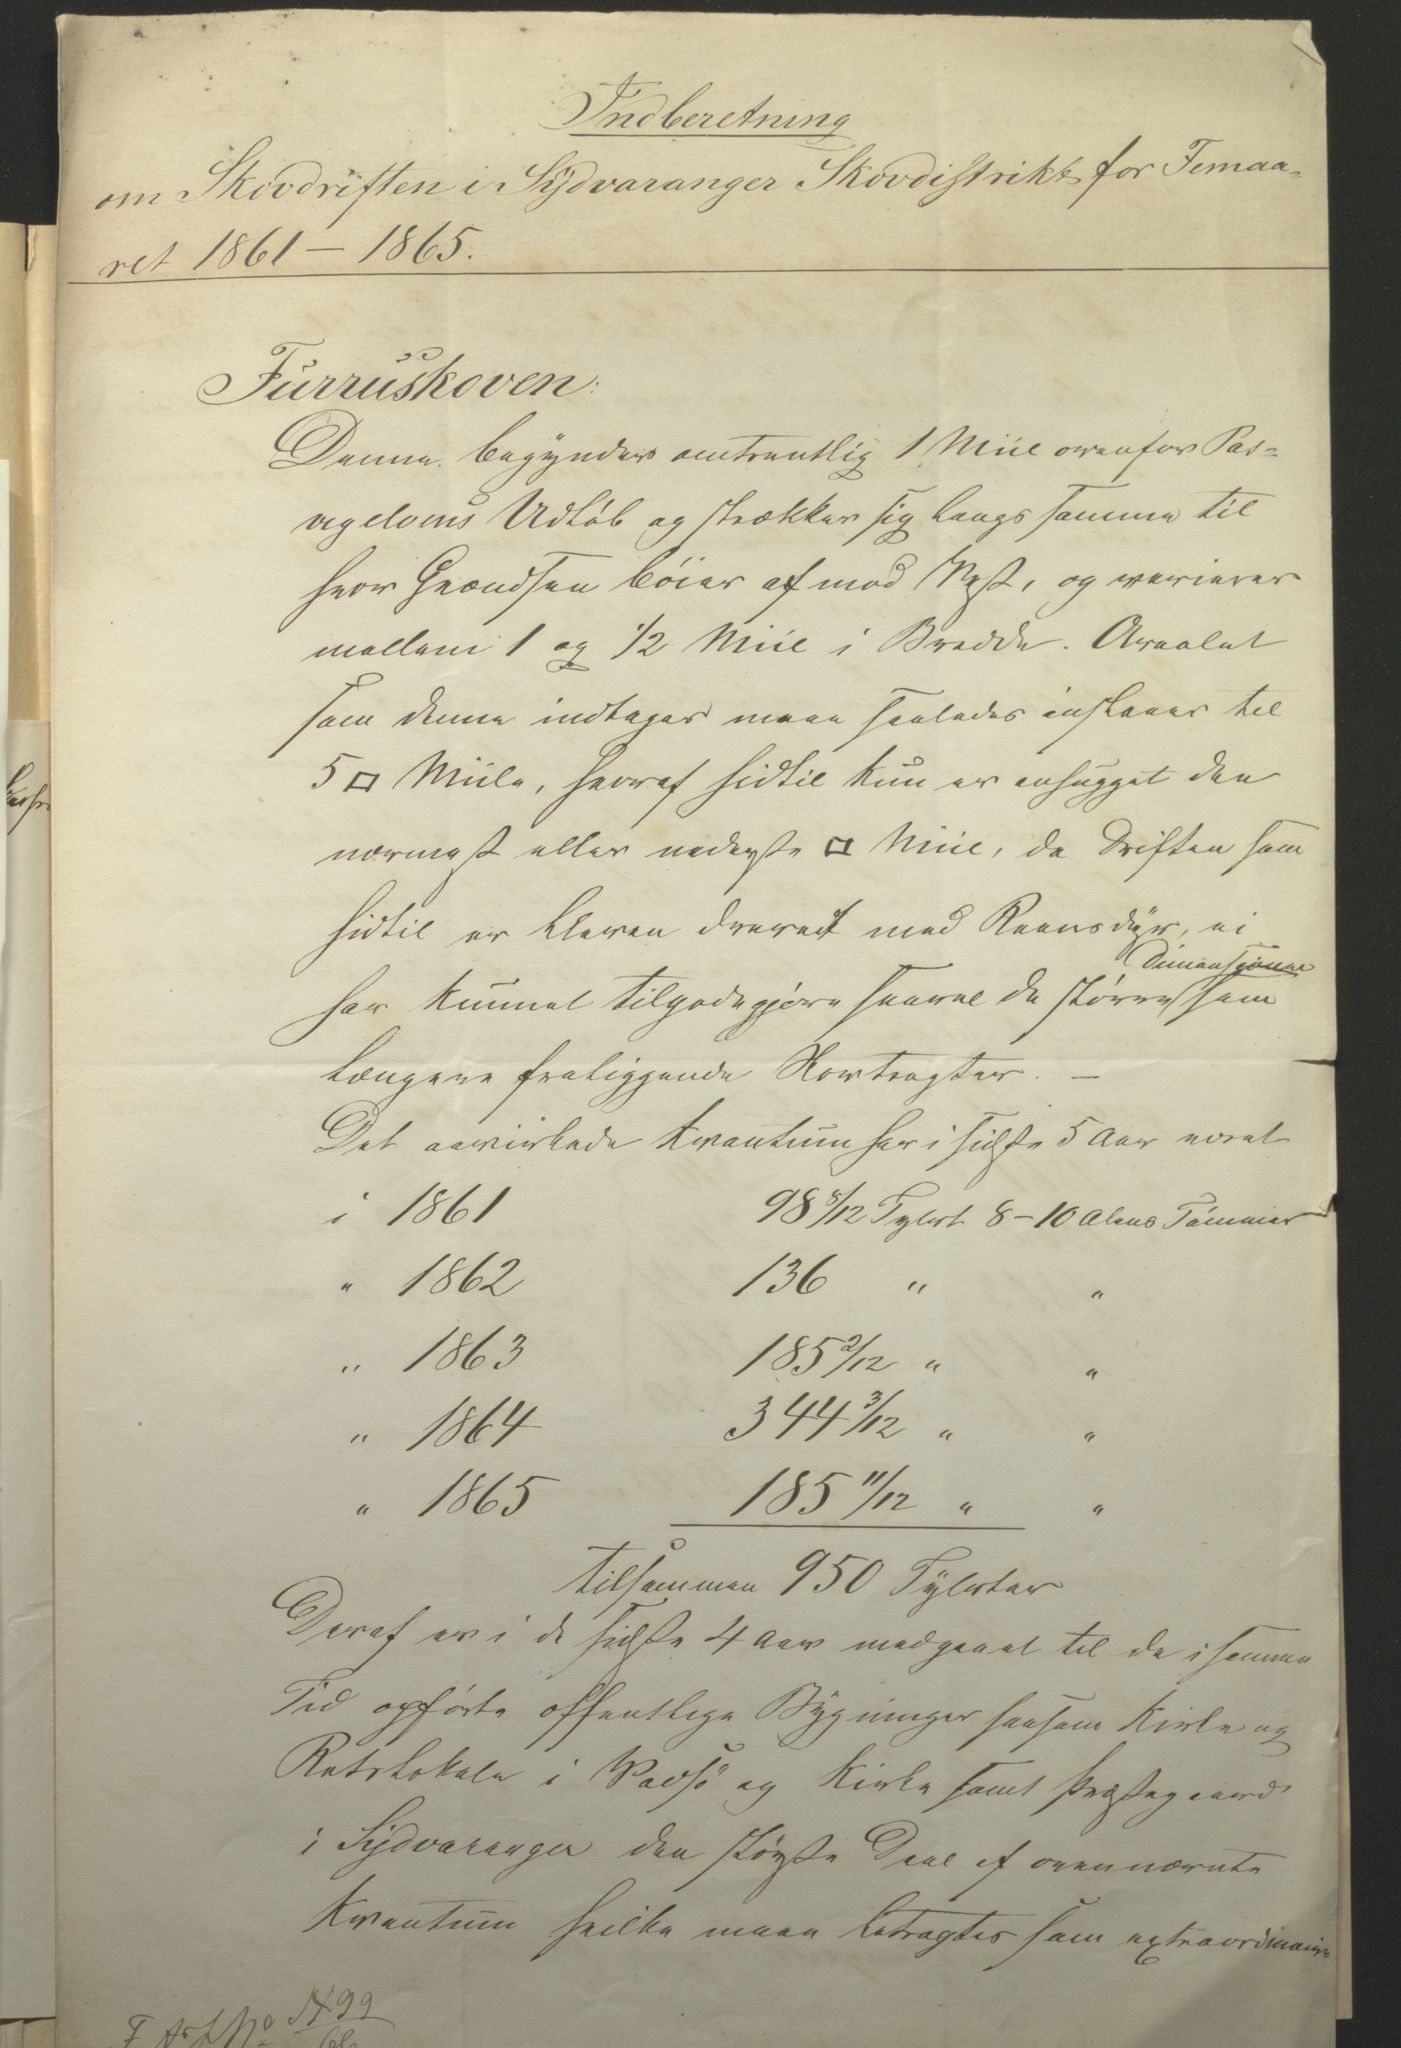 Indberetning
om Skovdriften i Sydvaranger Skovdistrikt for Femaa-
ret 1861 – 1865.
Furruskoven:
Denne begynder omtrentlig 1 Miil ovenfor Pas-
vigelvens Udløb og strækker sig langs samme til
hvor Grændsen böier af mod Vest, og varierer
mellem 1 og 1/2 Miil i Bredde. Arealet
som denne indtager maa saaledes ansLaaes til
5 □ Miile, hvoraf hidtil kun er anhugget den
nærmest eller nederste □ Miil, da Driften som
hidtil er bleven drevet med Reensdyr, ei
har kunnet tilgodegjøre saavel de større Dimensioner som
længere fraliggende Skovtragter. —
Det aavirkede Kvantum har i sidste 5 Aar været
i 1861 98 8/12 Tylvt 8–10 Alens Tømmer
" 1862 136 " "
" 1863 185 2/12 " "
" 1864 344 3/12 " "
" 1865 185 11/12 " "
tilsammen 950 Tylvter
Deraf er i de sidste 4 Aar medgaaet til de i samme
Tid opførte offentlige Bygninger saasom Kirke og
Retslokale i Vadsö og Kirke samt Præstegaard
i Sydvaranger den største Deel af ovennævnte
Kvantum hvilke maa betragtes som extraordinaire